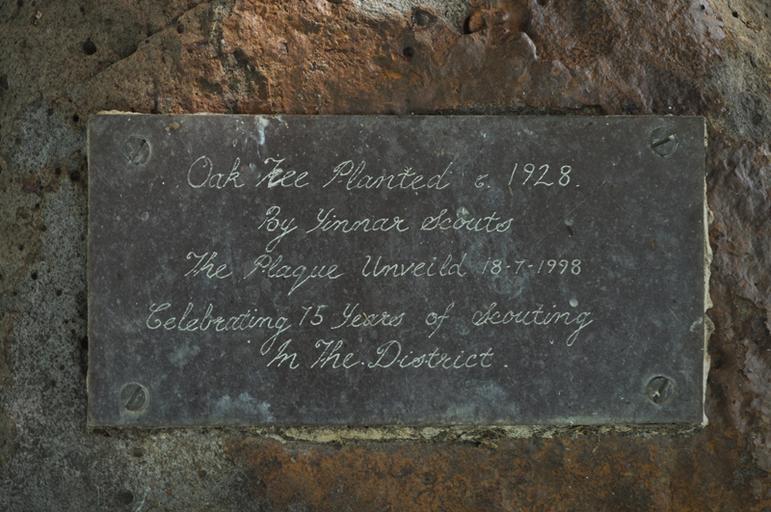 Oak Tree Planted c. 1928.
By Yinnar Scouts
The Plaque Unveild 18-7-1998
Celebrating 75 Years of Scouting
In The District.